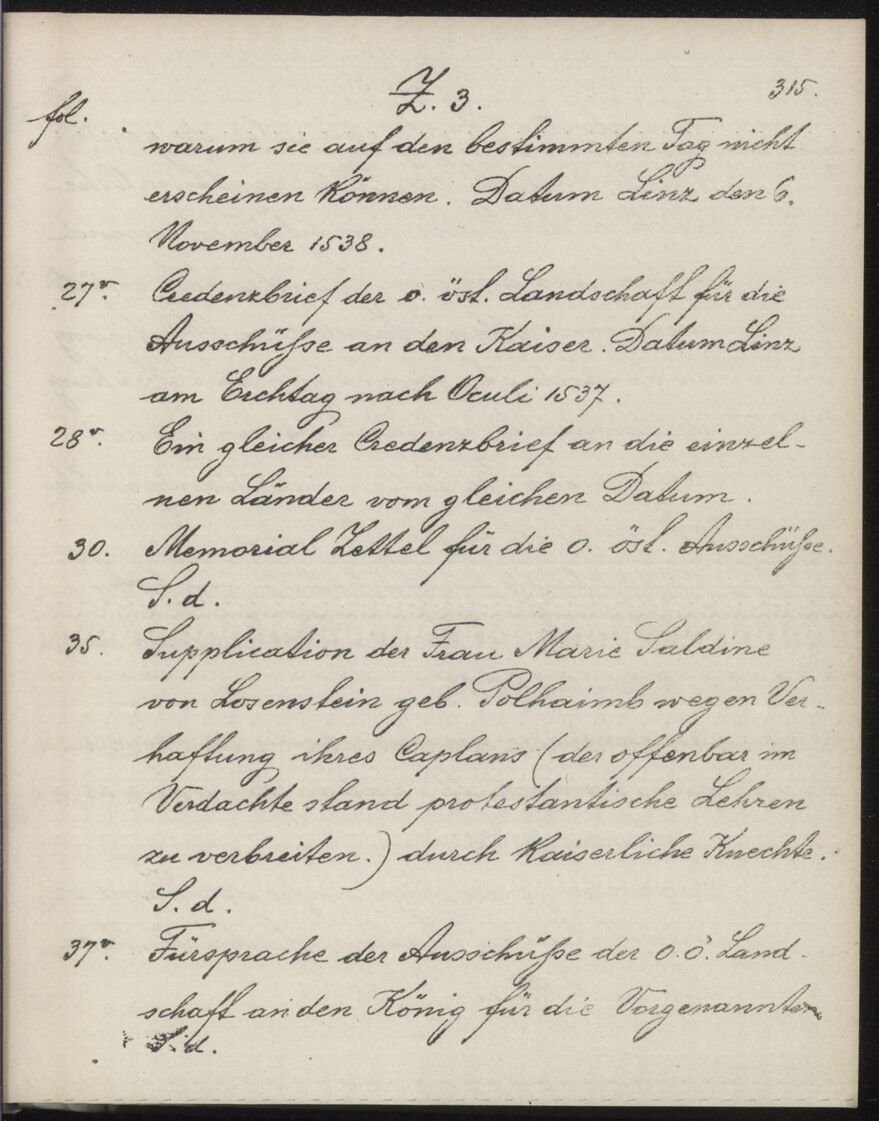 Z. 3.
315.
fol.
warum sie auf den bestimmten Tag nicht
erscheinen können. Datum Linz den 6.
November 1538.
27v. Credenzbrief der o. öst. Landschaft für die
Ausschüße an den Kaiser. Datum Linz
am Erchtag nach Oculi 1537.
28v. Ein gleicher Credenzbrief an die einzel-
nen Länder vom gleichen Datum.
30. Memorial Zettel für die o. öst. Ausschüße.
S. d.
35. Supplication der Frau Marie Saldine
von Losenstein geb. Polhaimb wegen Ver-
haftung ihres Caplans (der offenbar im
Verdachte stand protestantische Lehren
zu verbreiten.) durch Kaiserliche Knechte.
S. d.
37v. Fürsprache der Ausschüße der o. ö. Land-
schaft an den König für die Vorgenannten
S. d.